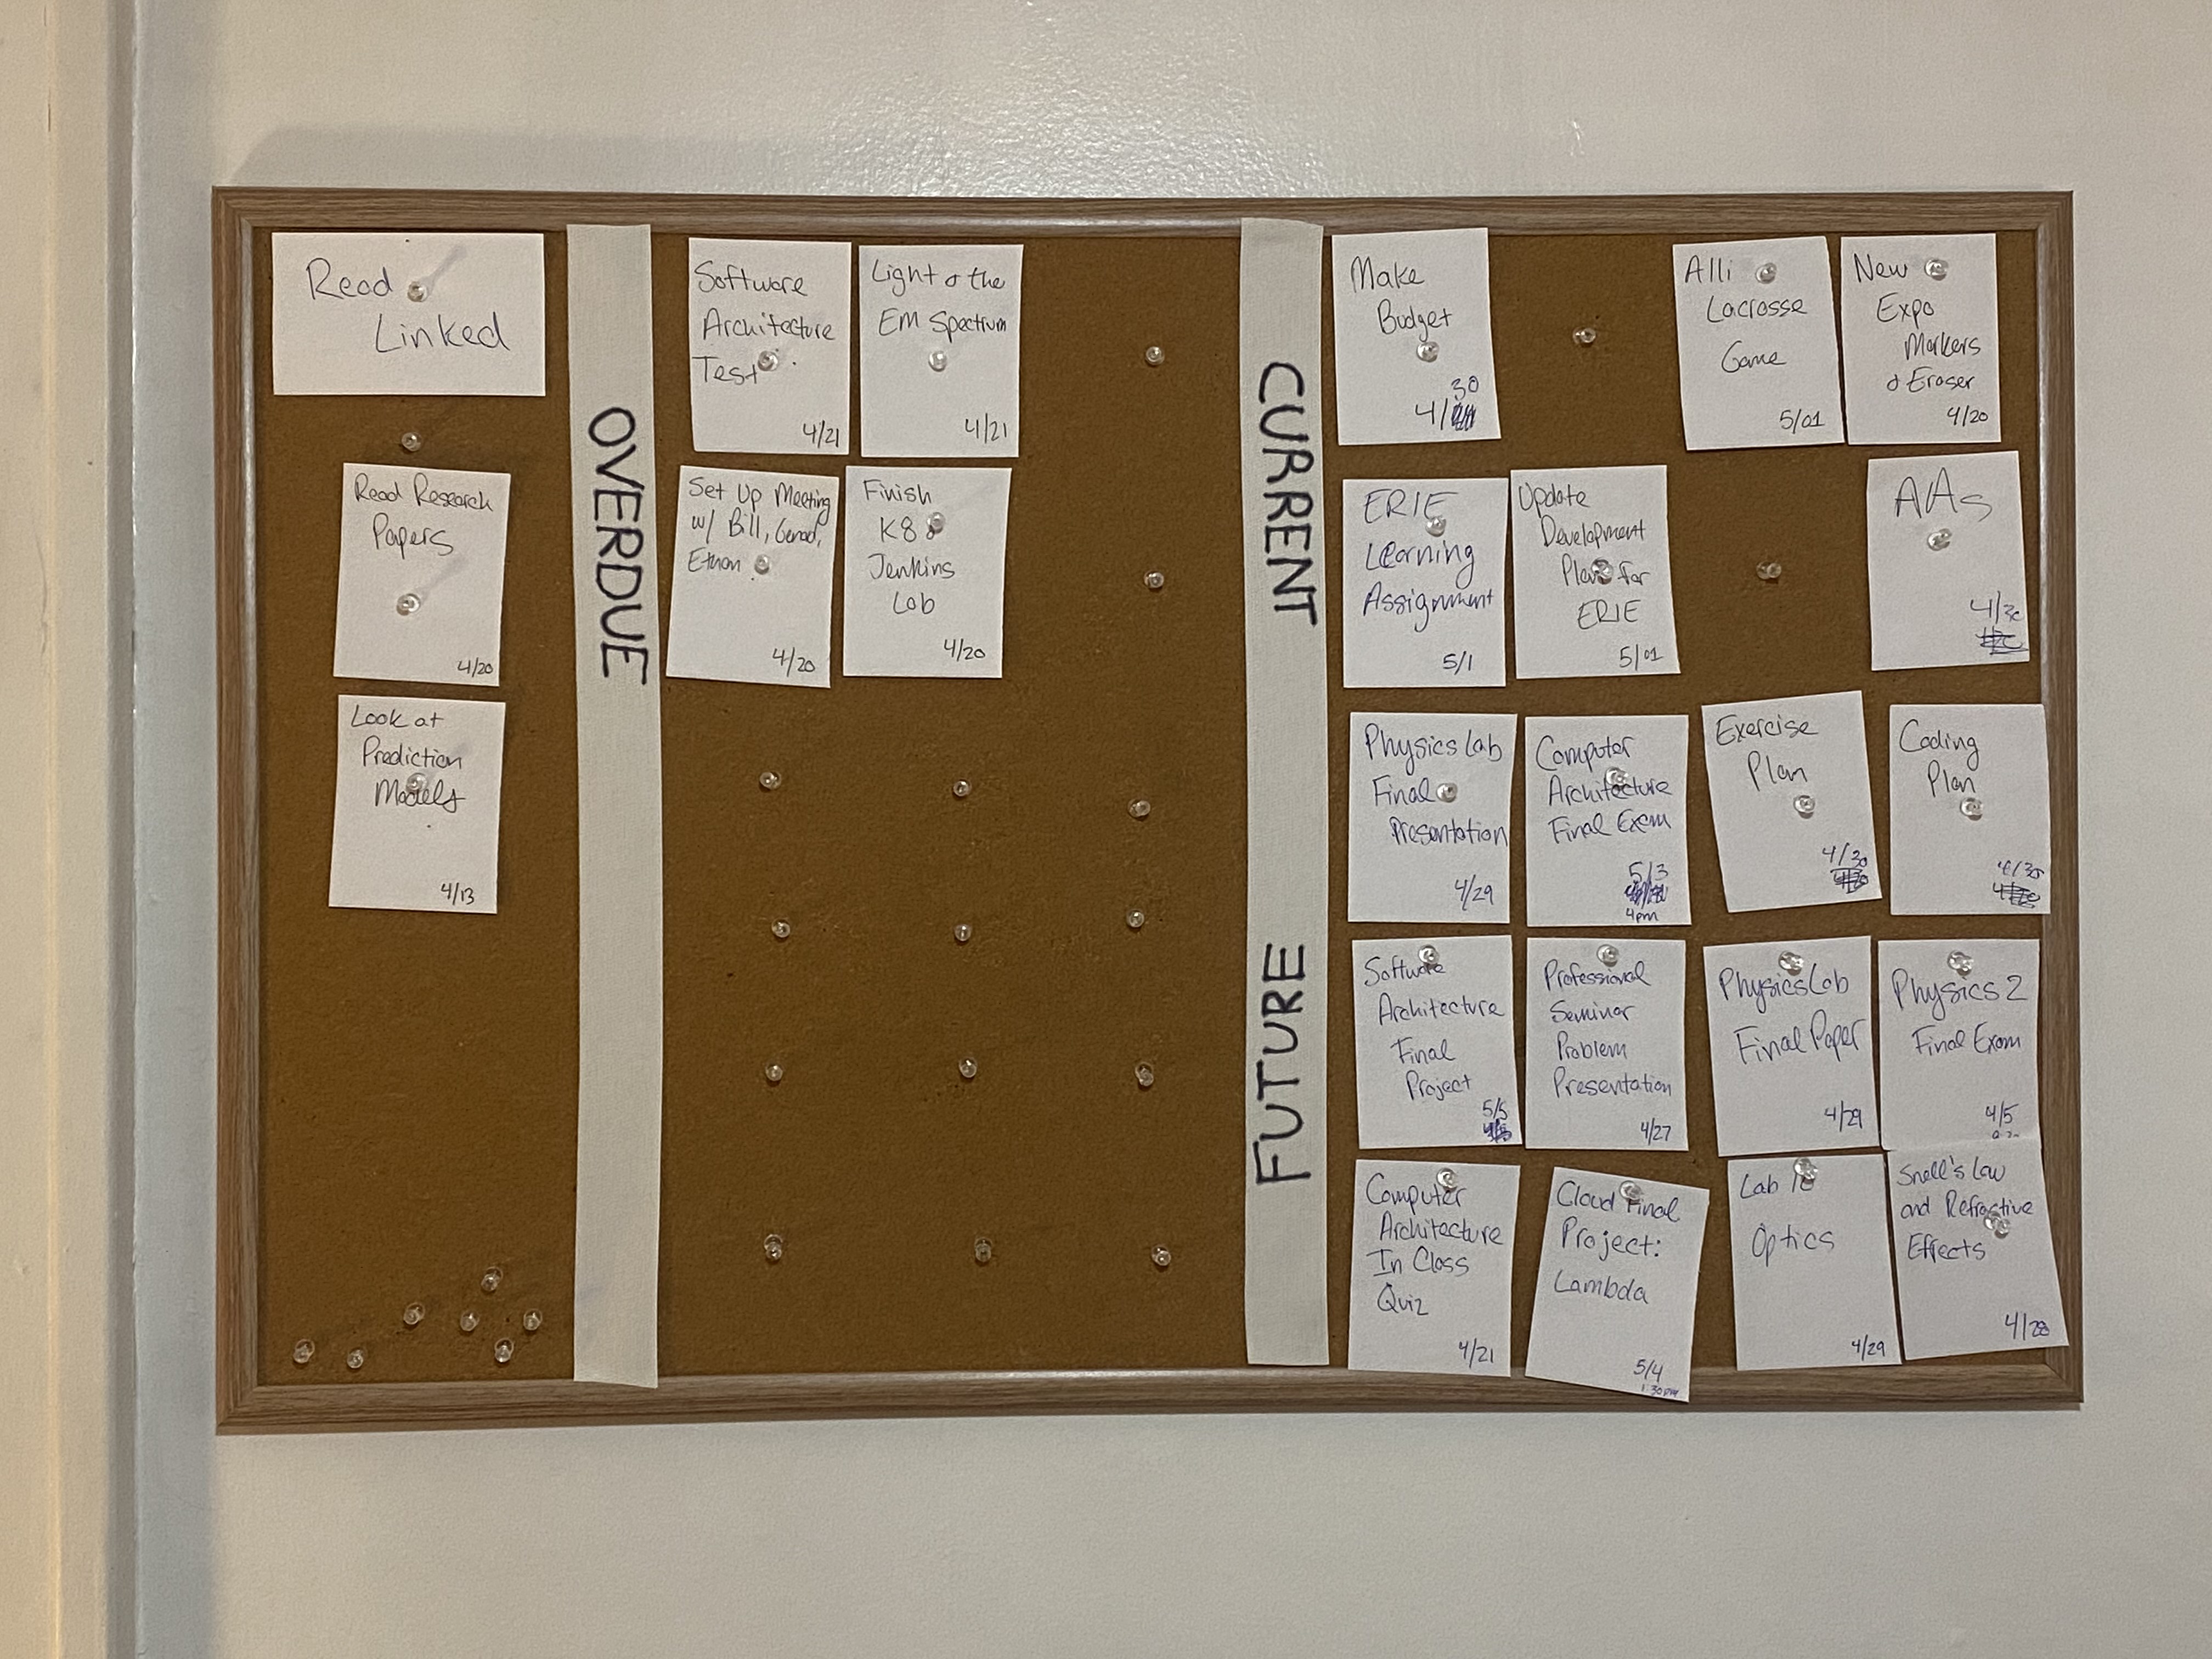 Read
Linked
Read Research
Papers
4/20
Look at
Prediction
Models
4/13
OVERDUE
Software
Architecture
Test
4/21
Light & the
EM Spectrum
4/21
Set Up Meeting
w/ Bill,
Ethan
4/20
Finish
K8s
Jenkins
Lab
4/20
CURRENT
FUTURE
Make
Budget
30
4/
Alli
Lacrosse
Game
5/01
New
Expo
Markers
& Eraser
4/20
ERIE
Learning
Assignment
5/1
Update
Development
Plan for
ERIE
5/01
AAs
4/30
Physics Lab
Final
Presentation
4/29
Computer
Architecture
Final Exam
5/3
4pm
Exercise
Plan
4/30
Coding
Plan
4/30
Software
Architecture
Final
Project
5/5
Professional
Seminar
Problem
Presentation
4/27
Physics Lab
Final Paper
4/29
Physics 2
Final Exam
4/5
Computer
Architecture
In Class
Quiz
4/21
Cloud Final
Project:
Lambda
5/4
1:30pm
Lab
Optics
4/29
Snell's Law
and Refractive
Effects
4/28